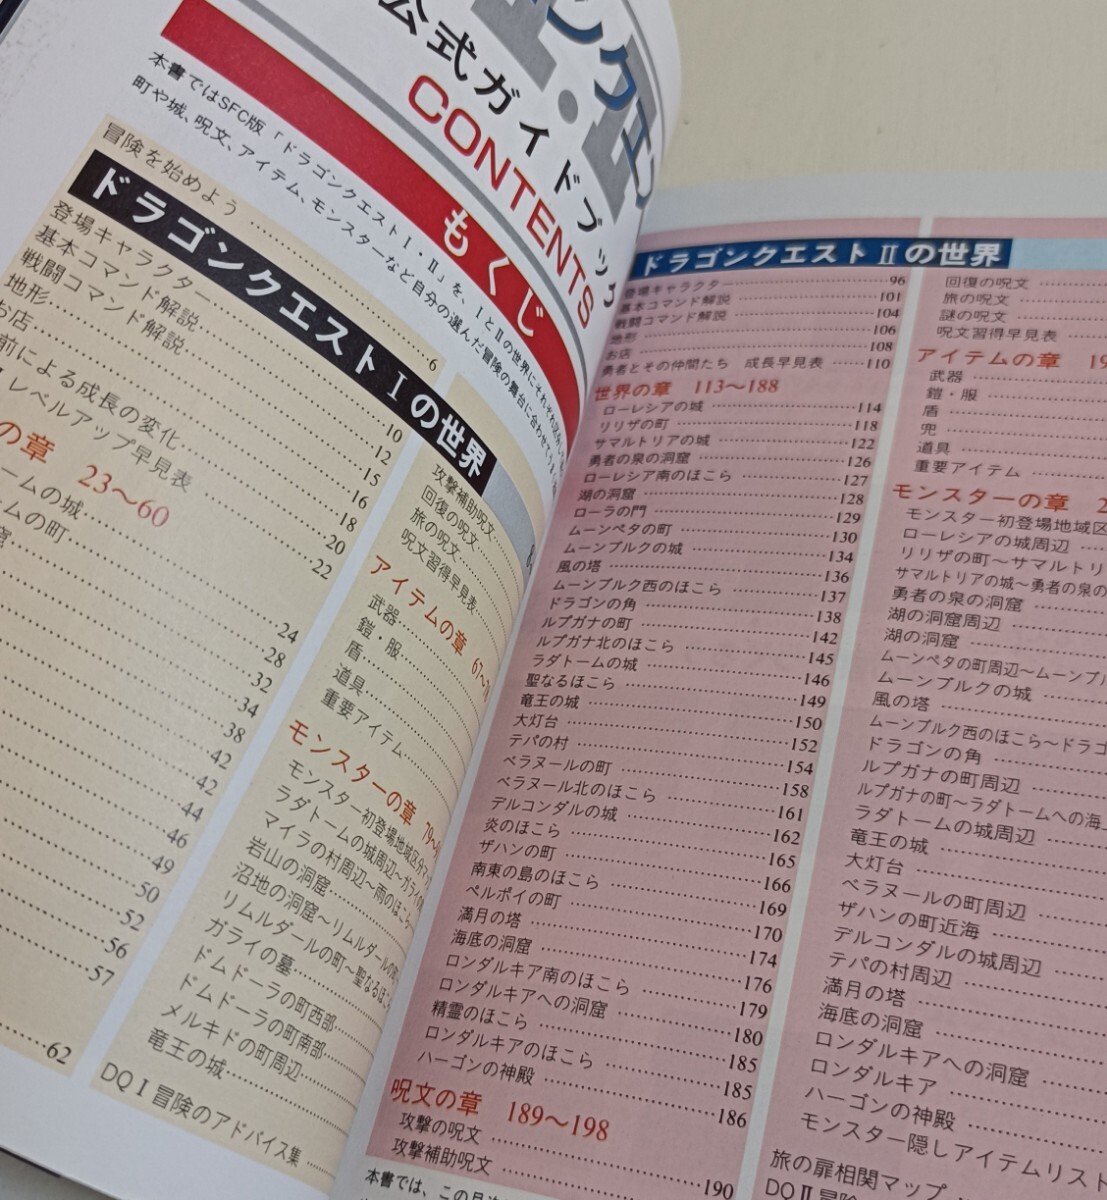 公式ガイドブック
CONTENTS
もくじ
本書ではSFC版「ドラゴンクエストI・II」を、IとIIの世界にそれぞれ
町や城、呪文、アイテム、モンスターなど自分の選んだ冒険の舞台に合わせて
冒険を始めよう 6
ドラゴンクエストIの世界
登場キャラクター 10
基本コマンド解説 12
戦闘コマンド解説 15
地形 16
お店 18
前による成長の変化 20
レベルアップ早見表 22
の章 23〜60
ームの城 24
ムの町 28
窟 32
34
38
42
42
44
46
49
50
52
56
57
62
攻撃補助呪文
回復の呪文
旅の呪文
呪文習得早見表
アイテムの章 67〜
武器
鎧・服
盾
道具
重要アイテム
モンスターの章
モンスター初登場地域区分マ
ラダトームの城周辺〜ガライの
マイラの村周辺〜雨のほこら
岩山の洞窟
沼地の洞窟〜リムルダール
リムルダールの町〜聖なるほこ
ガライの墓
ドムドーラの町西部
ドムドーラの町南部
メルキドの町周辺
竜王の城
DQI冒険のアドバイス集
ドラゴンクエストIIの世界
登場キャラクター 96
基本コマンド解説 101
戦闘コマンド解説 104
地形 106
お店 108
勇者とその仲間たち 成長早見表 110
世界の章 113〜188
ローレシアの城 114
リリザの町 118
サマルトリアの城 122
勇者の泉の洞窟 126
ローレシア南のほこら 127
湖の洞窟 128
ローラの門 129
ムーンペタの町 130
ムーンブルクの城 134
風の塔 136
ムーンブルク西のほこら 137
ドラゴンの角 138
ルプガナの町 142
ルプガナ北のほこら 145
ラダトームの城 146
聖なるほこら 149
竜王の城 150
大灯台 152
テパの村 154
ベラヌールの町 158
ベラヌール北のほこら 161
デルコンダルの城 162
炎のほこら 165
ザハンの町 166
南東の島のほこら 169
ペルポイの町 170
満月の塔 174
海底の洞窟 176
ロンダルキア南のほこら 179
ロンダルキアへの洞窟 180
精霊のほこら 185
ロンダルキアのほこら 185
ハーゴンの神殿 186
呪文の章 189〜198
攻撃の呪文 190
攻撃補助呪文
本書では、この目次
回復の呪文
旅の呪文
謎の呪文
呪文習得早見表
アイテムの章 19
武器
鎧・服
盾
兜
道具
重要アイテム
モンスターの章 2
モンスター初登場地域区
ローレシアの城周辺
リリザの町〜サマルトリ
サマルトリアの城〜勇者の泉の
勇者の泉の洞窟
湖の洞窟周辺
湖の洞窟
ムーンペタの町周辺〜ムーンブル
ムーンブルクの城
風の塔
ムーンブルク西のほこら〜ドラゴ
ドラゴンの角
ルプガナの町周辺
ルプガナの町〜ラダトームへの海上
ラダトームの城周辺
竜王の城
大灯台
ベラヌールの町周辺
ザハンの町近海
デルコンダルの城周辺
テパの村周辺
満月の塔
海底の洞窟
ロンダルキアへの洞窟
ロンダルキア
ハーゴンの神殿
モンスター隠しアイテムリスト
旅の扉相関マップ
DQII冒険